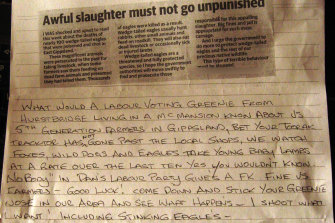 Awful slaughter must not go unpunished
I WAS shocked and upset to read
this week about the deaths of
nearly
wedge-tailed eagles
that were poisoned and shot in
East Gippsland.
These magnificent animals
were persecuted in the past for
taking livestock, when some
farmers saw them feeding on
eagles were killed as a result.
Wedge-tailed eagles usually hunt
rabbits, other small animals and
feed on roadkill. They will also eat
dead livestock or occasionally sick
or injured lambs.
Wedge-tailed eagles are a
threatened and fully protected
species, so I hope the government
will move swiftly to find and
responsible for this appalling
slaughter. Big fines and jail is
the government to
do more to protect wedge-tailed
eagles and the rest of our
This type of terrible behaviour
WHAT WOULD A LABOUR VOTING GREENIE FROM
HURSTBRIDGE LIVING IN A MCMANSION KNOW ABOUT US
5TH GENERATION FARMERS IN GIPPSLAND, BET YOUR TOORAK
TRACKTOR HAS NOT GONE PAST THE LOCAL SHOPS, WE WATCH
FOXES, WILD DOGS AND EAGLES TAKE YOUNG BABY LAMBS
AT A RATE OVER THE LAST TEN YRS YOU WOULDN'T KNOW
NOBODY IN DAN'S LABOUR PARTY GIVES A FK FINE US
FARMERS - GOOD LUCK. COME DOWN AND STICK YOUR GREENIE
NOSE IN OUR AREA AND SEE WHAT HAPPENS - I SHOOT WHAT
I WANT, INCLUDING STINKING EAGLES -